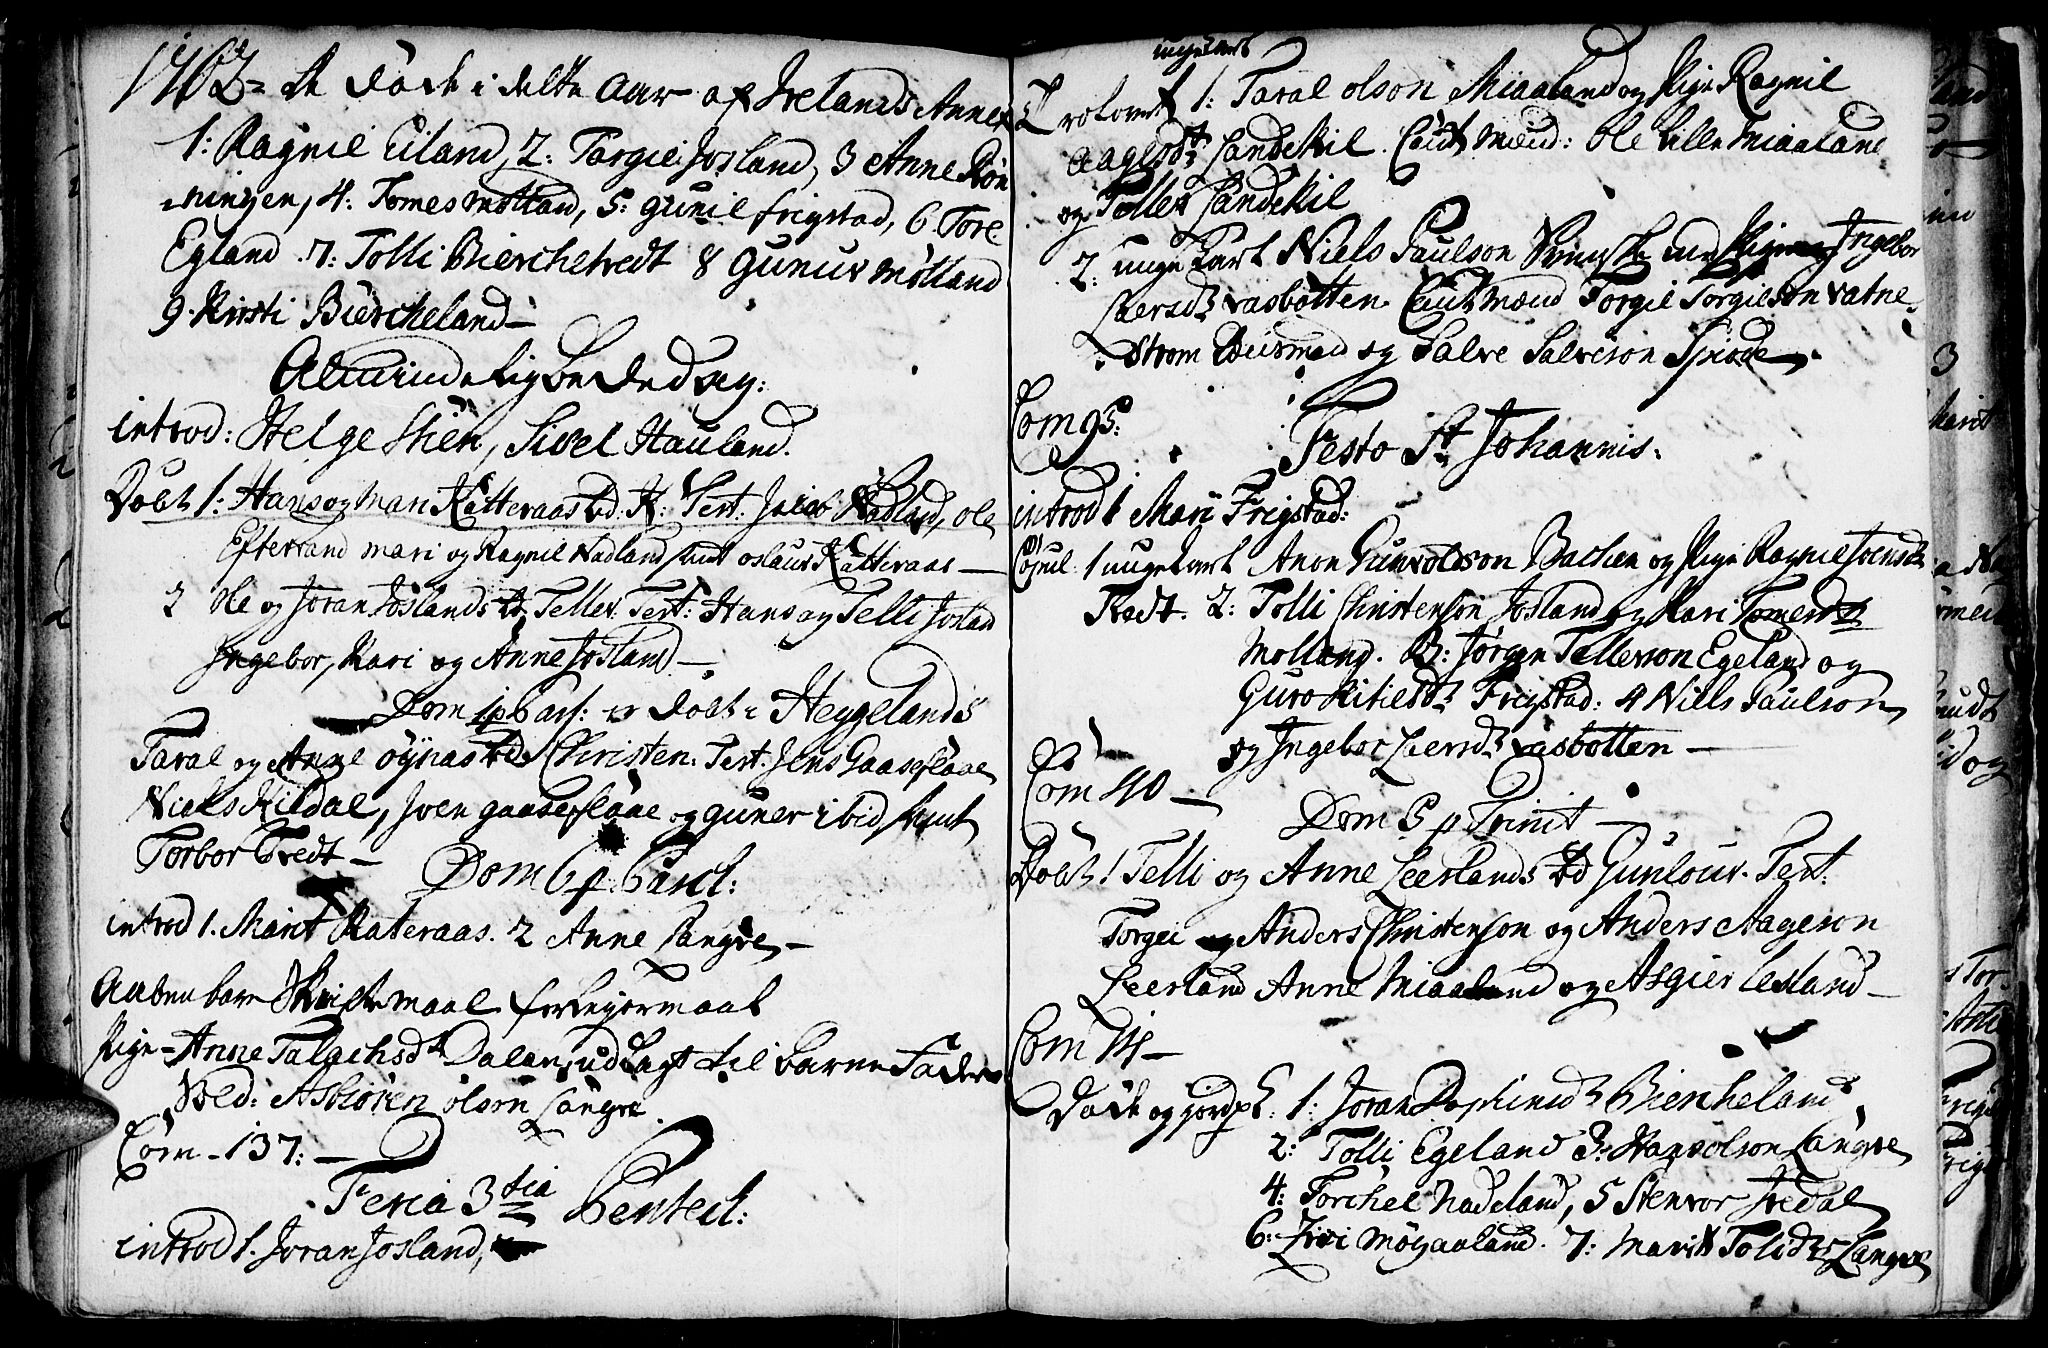 1762 = Er døde i dette Aar af Ivelands Annex
1: Ragnil Eiland, 2: Targiei Josland, 3 Anne Røn
-ningen, 4: Tomes Molland, 5: Gunil Frigstad, 6 Tore
Egland. 7: Tolli Bierchetvedt 8 Gunur Molland
9. Kirsti Biercheland —
Almindelig bededag:
introd: Helge Skien, Sivel Hauland.
Døbt 1: Hans og Mari Katteraas bd: Test: Jacob Nadland, ole
Efterrand mari og Ragnil Nadland samt oslaur Katteraas —
2 Ole og Joran Joslands bd Tellev. Test: Hans og Telli Josland
Ingebor, Kari og Anne Josland —
Dom 1 p Pasc: er døbt i Heggelands
Taral og Anne øynas bd Christen. Test. Jens Gaasefløae
Niels Kildal, Joen gaasefløae og guner ibid samt
Torbor Tvedt —
Dom 6 p. Pasch:
introd 1. Marit Kateraas. 2 Anne Langre, —
Aabenbare Skriftemaal for Leyermaal
Pige = Anne Talachsdt Dalen, udlagt til barne Fader
Ved: Asbiøren olson Langre.
Com - 137: —
Feria 3 tia Pentech:
introd 1. Joran Josland,
ungekarl
Trolovet 1: Taral olson Miaaland og Pige Ragnil
Aagesdt Landskil. Caut Mænd: Ole Lille Miaaland
og Tollev Landskil
2: unge karl Niels Paulson Ingebor
Leersdt vasbotten. Caut mænd Torgie Torgieson vatne-
strøm og Salve Salveson
Com 95:
Festo St Johannis.
introd 1 Mari Frigstad:
Copul: 1 ungekarl Anon Gunvoldson Bachen og Pige Ragnil Joensdt
Tvedt. 2: Tolli Christenson Josland og Kari Tomesdt
Molland. 3: Jørgen Tellevson Egeland og
Guro Kitilsdt Frigstad: 4 Niels Paulson
og Ingebor Leersdt vasbotten —
Com 40 —
Dom 5 p Trinit —
Døbt 1 Telli og Anne Leerlands bd Gunlour. Test:
Torgei og Anders Christenson og Anders Aageson
Leerland Anne Miaaland og Asgier Lesland —
Com 114 —
Døde og jordpt: 1: Joran Biercheland
2: Tolli Egeland 3: Hans olson Langre
4: Torchel Nadeland, 5 Stenvor Iredal
6: Zivi Møgaaland. 7: Marit Tolidt Langre